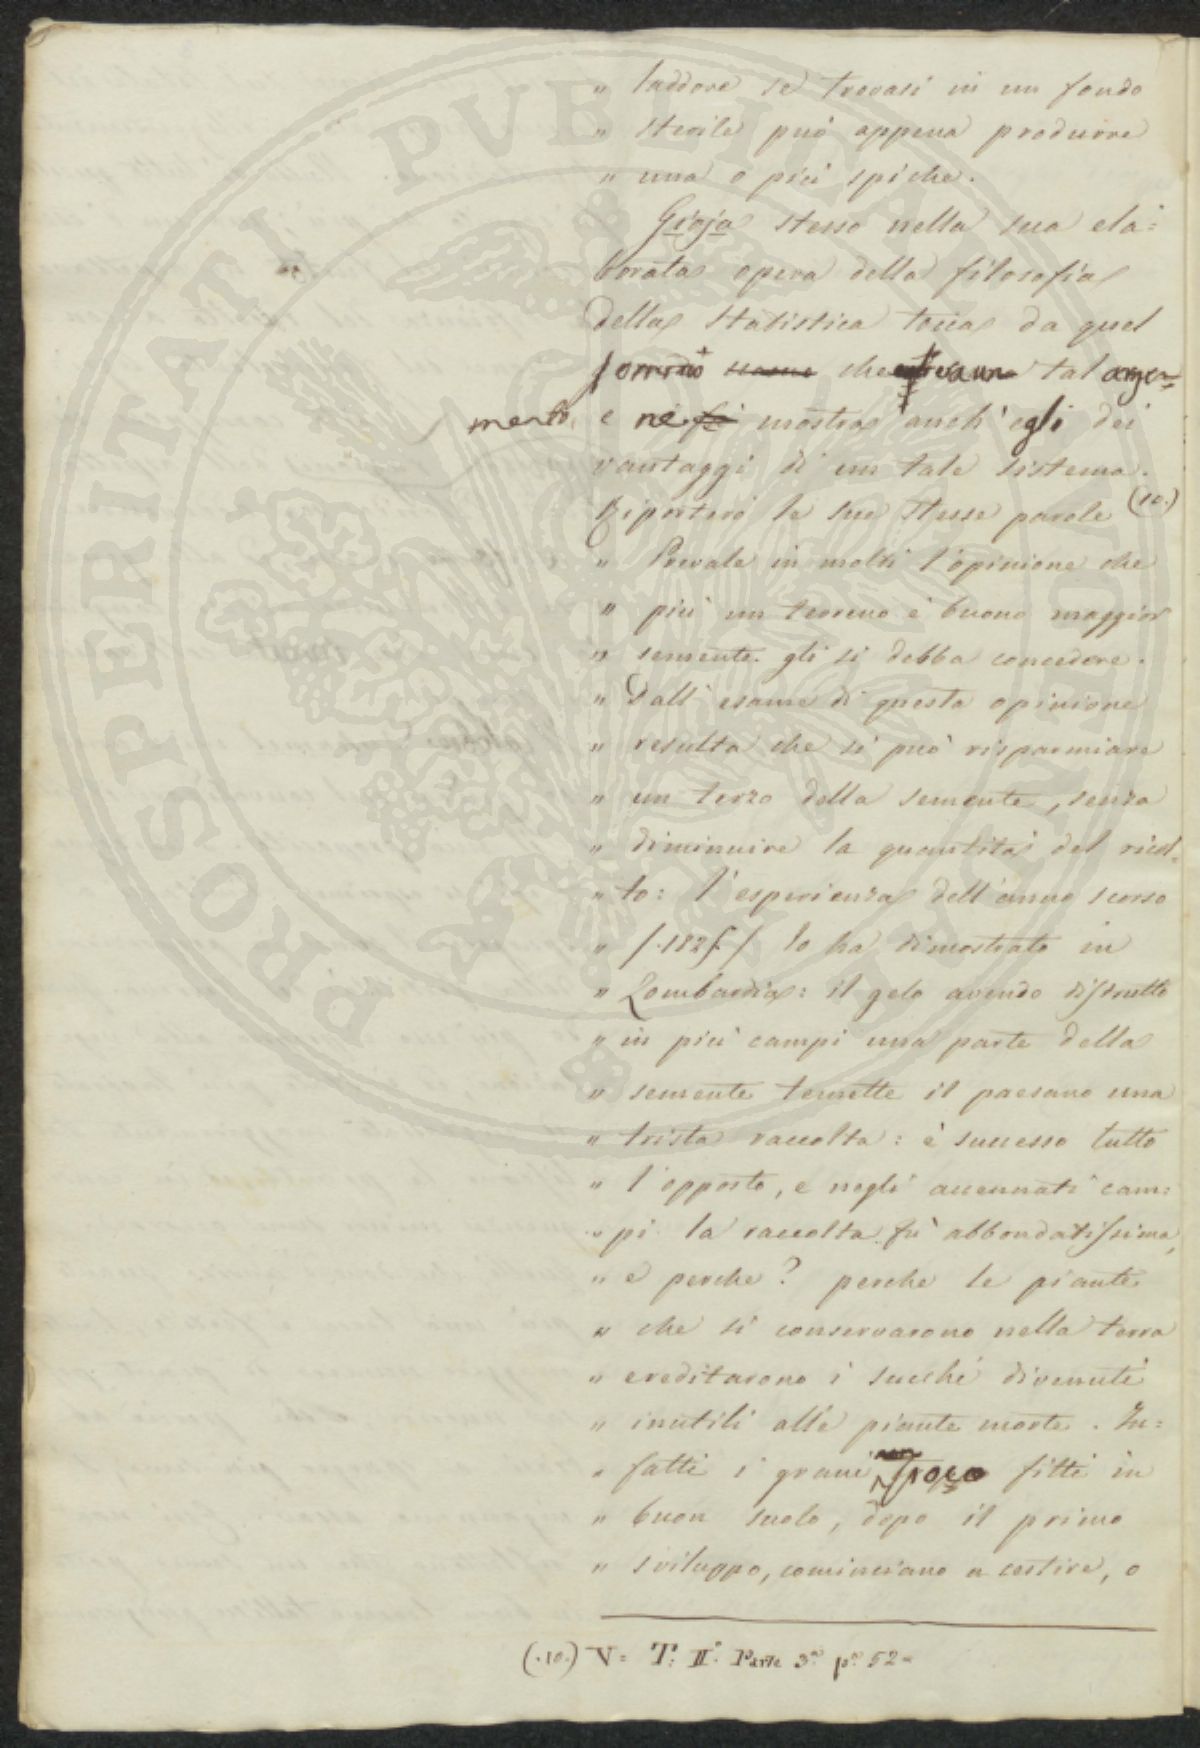 " laddove se trovasi in un fondo
" sterile può appena produrre
" una o più spiche.
Gioja stesso nella sua ela=
borata opera della filosofia
della Statistica tocca da quel
sommo che tal argo=
mento, e ne mostra anch'egli dei
vantaggi di un tale sistema.
Riporterò le sue stesse parole (10.)
" Prevale in molti l'opinione che
" più un terreno è buono maggior
" semente gli si debba concedere.
" Dall'esame di questa opinione
" resulta che si può risparmiare
" un terzo della semente, senza
" diminuire la quantità del ricol=
" to: l'esperienza dell'anno scorso
" lo ha dimostrato in
" Lombardia: il gelo avendo distrutto
" in più campi una parte della
" semente temette il paesano una
" trista raccolta: è successo tutto
" l'opposto, e negli accennati cam=
" pi la raccolta fù abbondatissima,
" e perche? perche le piante
" che si conservarono nella terra
" ereditarono i succhi divenuti
" inutili alle piante morte. In=
" fatti i grani non poco fitti in
" buon suolo, dopo il primo
" sviluppo, cominciano a cestire, o
(.10.) V= T: II° Parte 3ª pª 52=
PROSPERITATI PUBLICAE AU